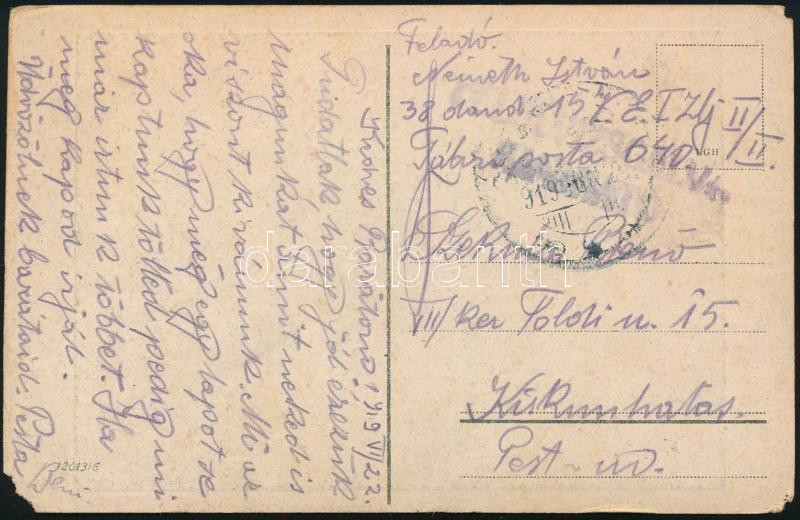 Kedves Barátom! 919 VI/22.
Tudatlak hogy jól érezzük
magunkat amit neked is
viszont kivánunk. Mi az
oka, hogy még egy lapot se
kaptunk tőlled pedig mi
már irtunk többet. Ha
meg kapod irjál.
Üdvözölnek barátaid. Pista
Beni
201316
Feladó.
Németh István
38 dand. 15 Z. E. I Zlj II/II.
Tábori posta 640
919 JUN 2
VIII
Jenő
III/ker Földi u. 15.
Kiskunhalas.
Pest-m.
darabanth